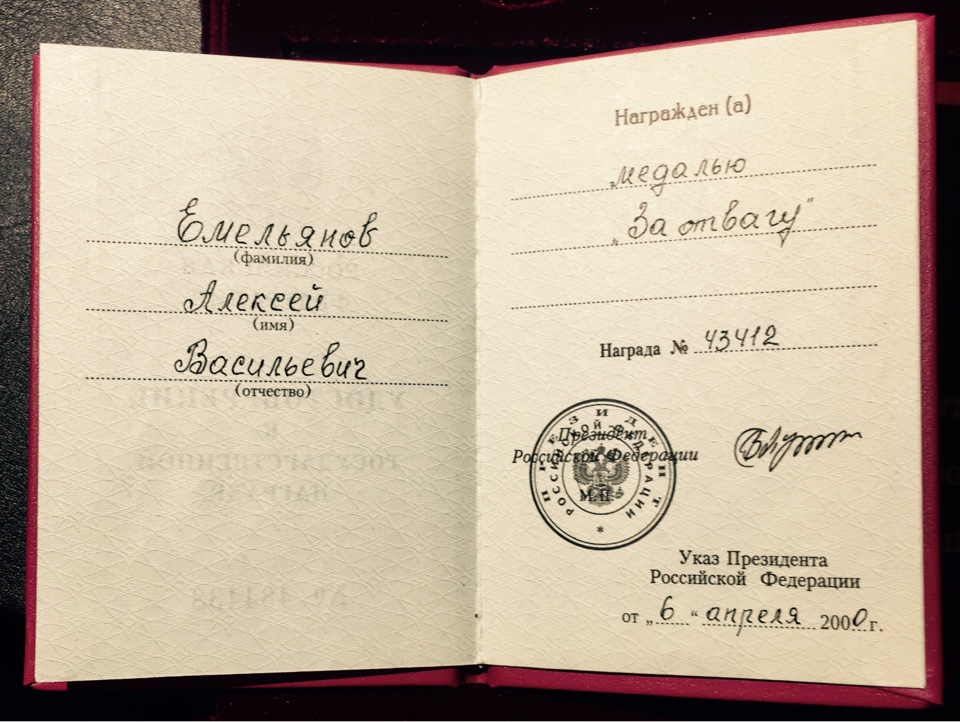 Емельянов
(фамилия)
Алексей
(имя)
Васильевич
(отчество)
Награжден (а)
медалью
„За отвагу"
Награда № 43412
Президент
Российской Федерации
М.П.
ПРЕЗИДЕНТ
РОССИЙСКОЙ ФЕДЕРАЦИИ
Указ Президента
Российской Федерации
от „6" апреля 2000 г.